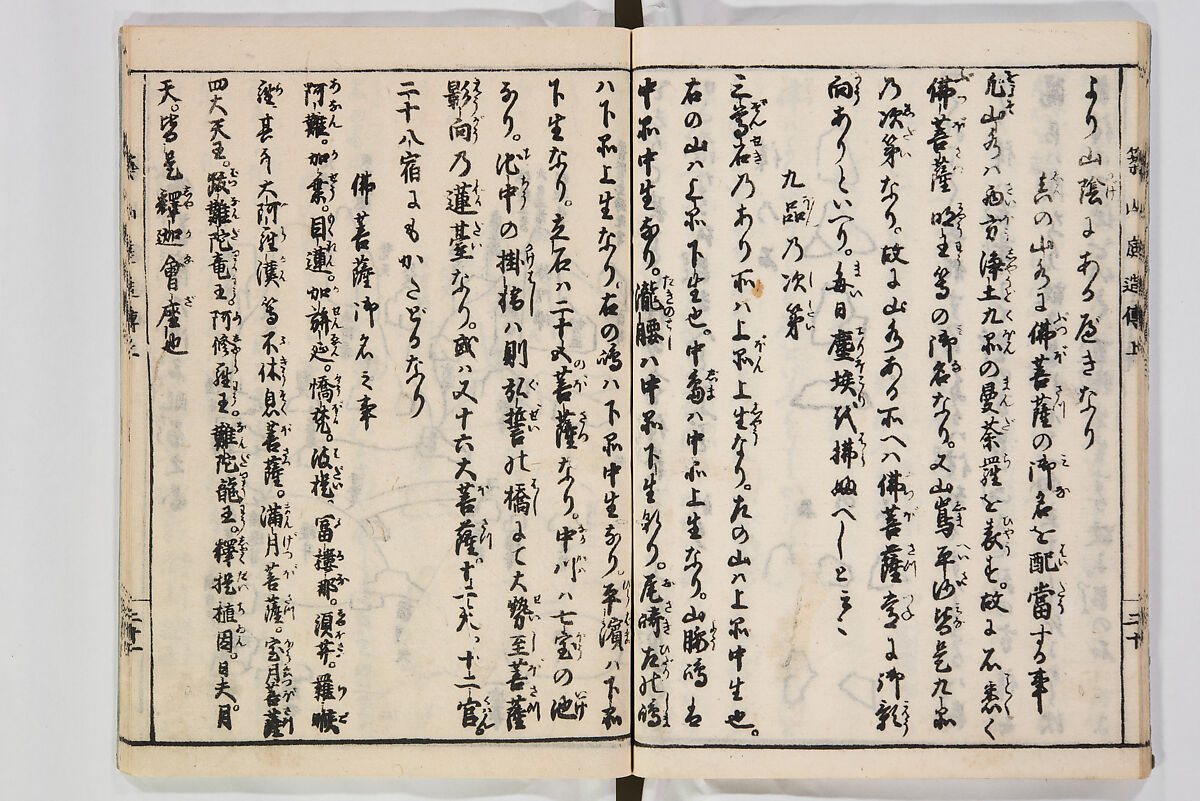 築山庭造傳上
より山陰にあるべきなり
真の山水に佛菩薩の御名を配當する事
凡山水は西方浄土九品の曼荼羅を表す。故に石悉く
佛菩薩明王等の御名なり。又山嶌平沙皆是九品
乃次第なり。故に山水ある所へハ佛菩薩常に御影
向ありといへり。毎日塵埃を拂ふべしと云々
九品乃次第
三尊石乃あり所ハ上品上生なり。左の山ハ上品中生也。
右の山ハ上品下生也。中嶌ハ中品上生なり。山腰嶋は
中品中生なり。瀧腰ハ中品下生なり。尾崎左の嶋
ハ下品上生なり。右の嶋ハ下品中生なり。平濱ハ下品
下生なり。立石ハ二十五菩薩なり。中川ハ七宝の池
なり。池中の掛橋ハ則弘誓の橋にて大勢至菩薩
影向乃蓮臺なり。或ハ又十六大菩薩。十二天。十二宮。
二十八宿にもかたどるなり
佛菩薩御名之事
阿難。加葉。目蓮。加旃延。憍梵。波提、冨樓那。須菩。羅睺
羅其外大阿羅漢等不休息菩薩。滿月菩薩。宝月菩薩
四大天王。跋難陀竜王阿修羅王難陀龍王。釋提植因日天。月
天。皆是釋迦會座也